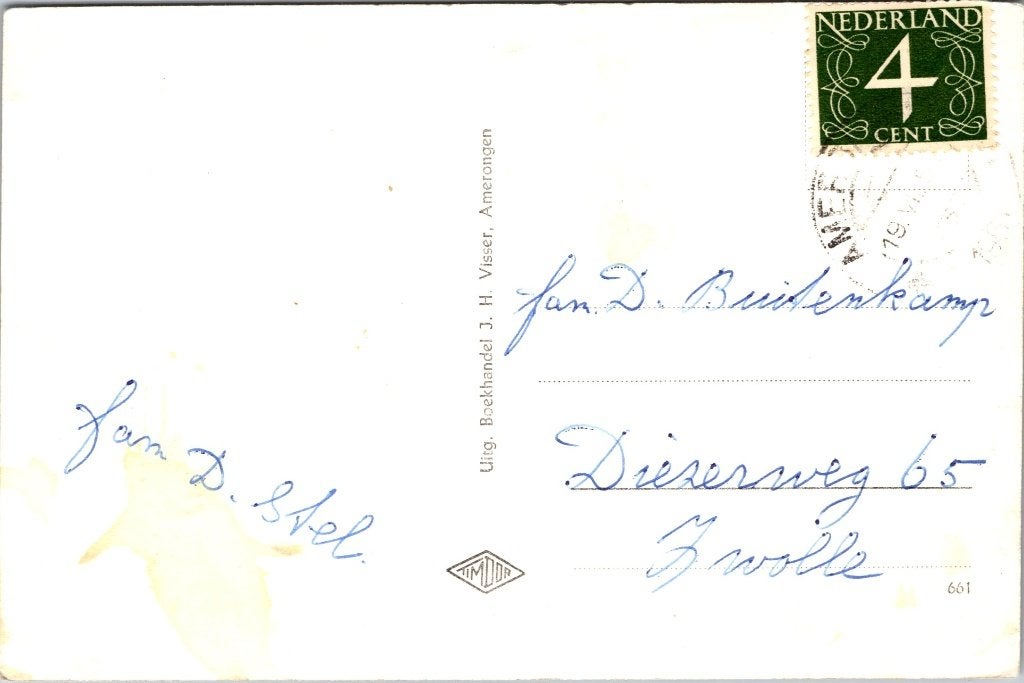 NEDERLAND
4
CENT
19.VI
fam. D. Buitenkamp
Diezerweg 65
Zwolle
fam D. Stel.
Uitg. Boekhandel J. H. Visser, Amerongen
TIMDOR
661